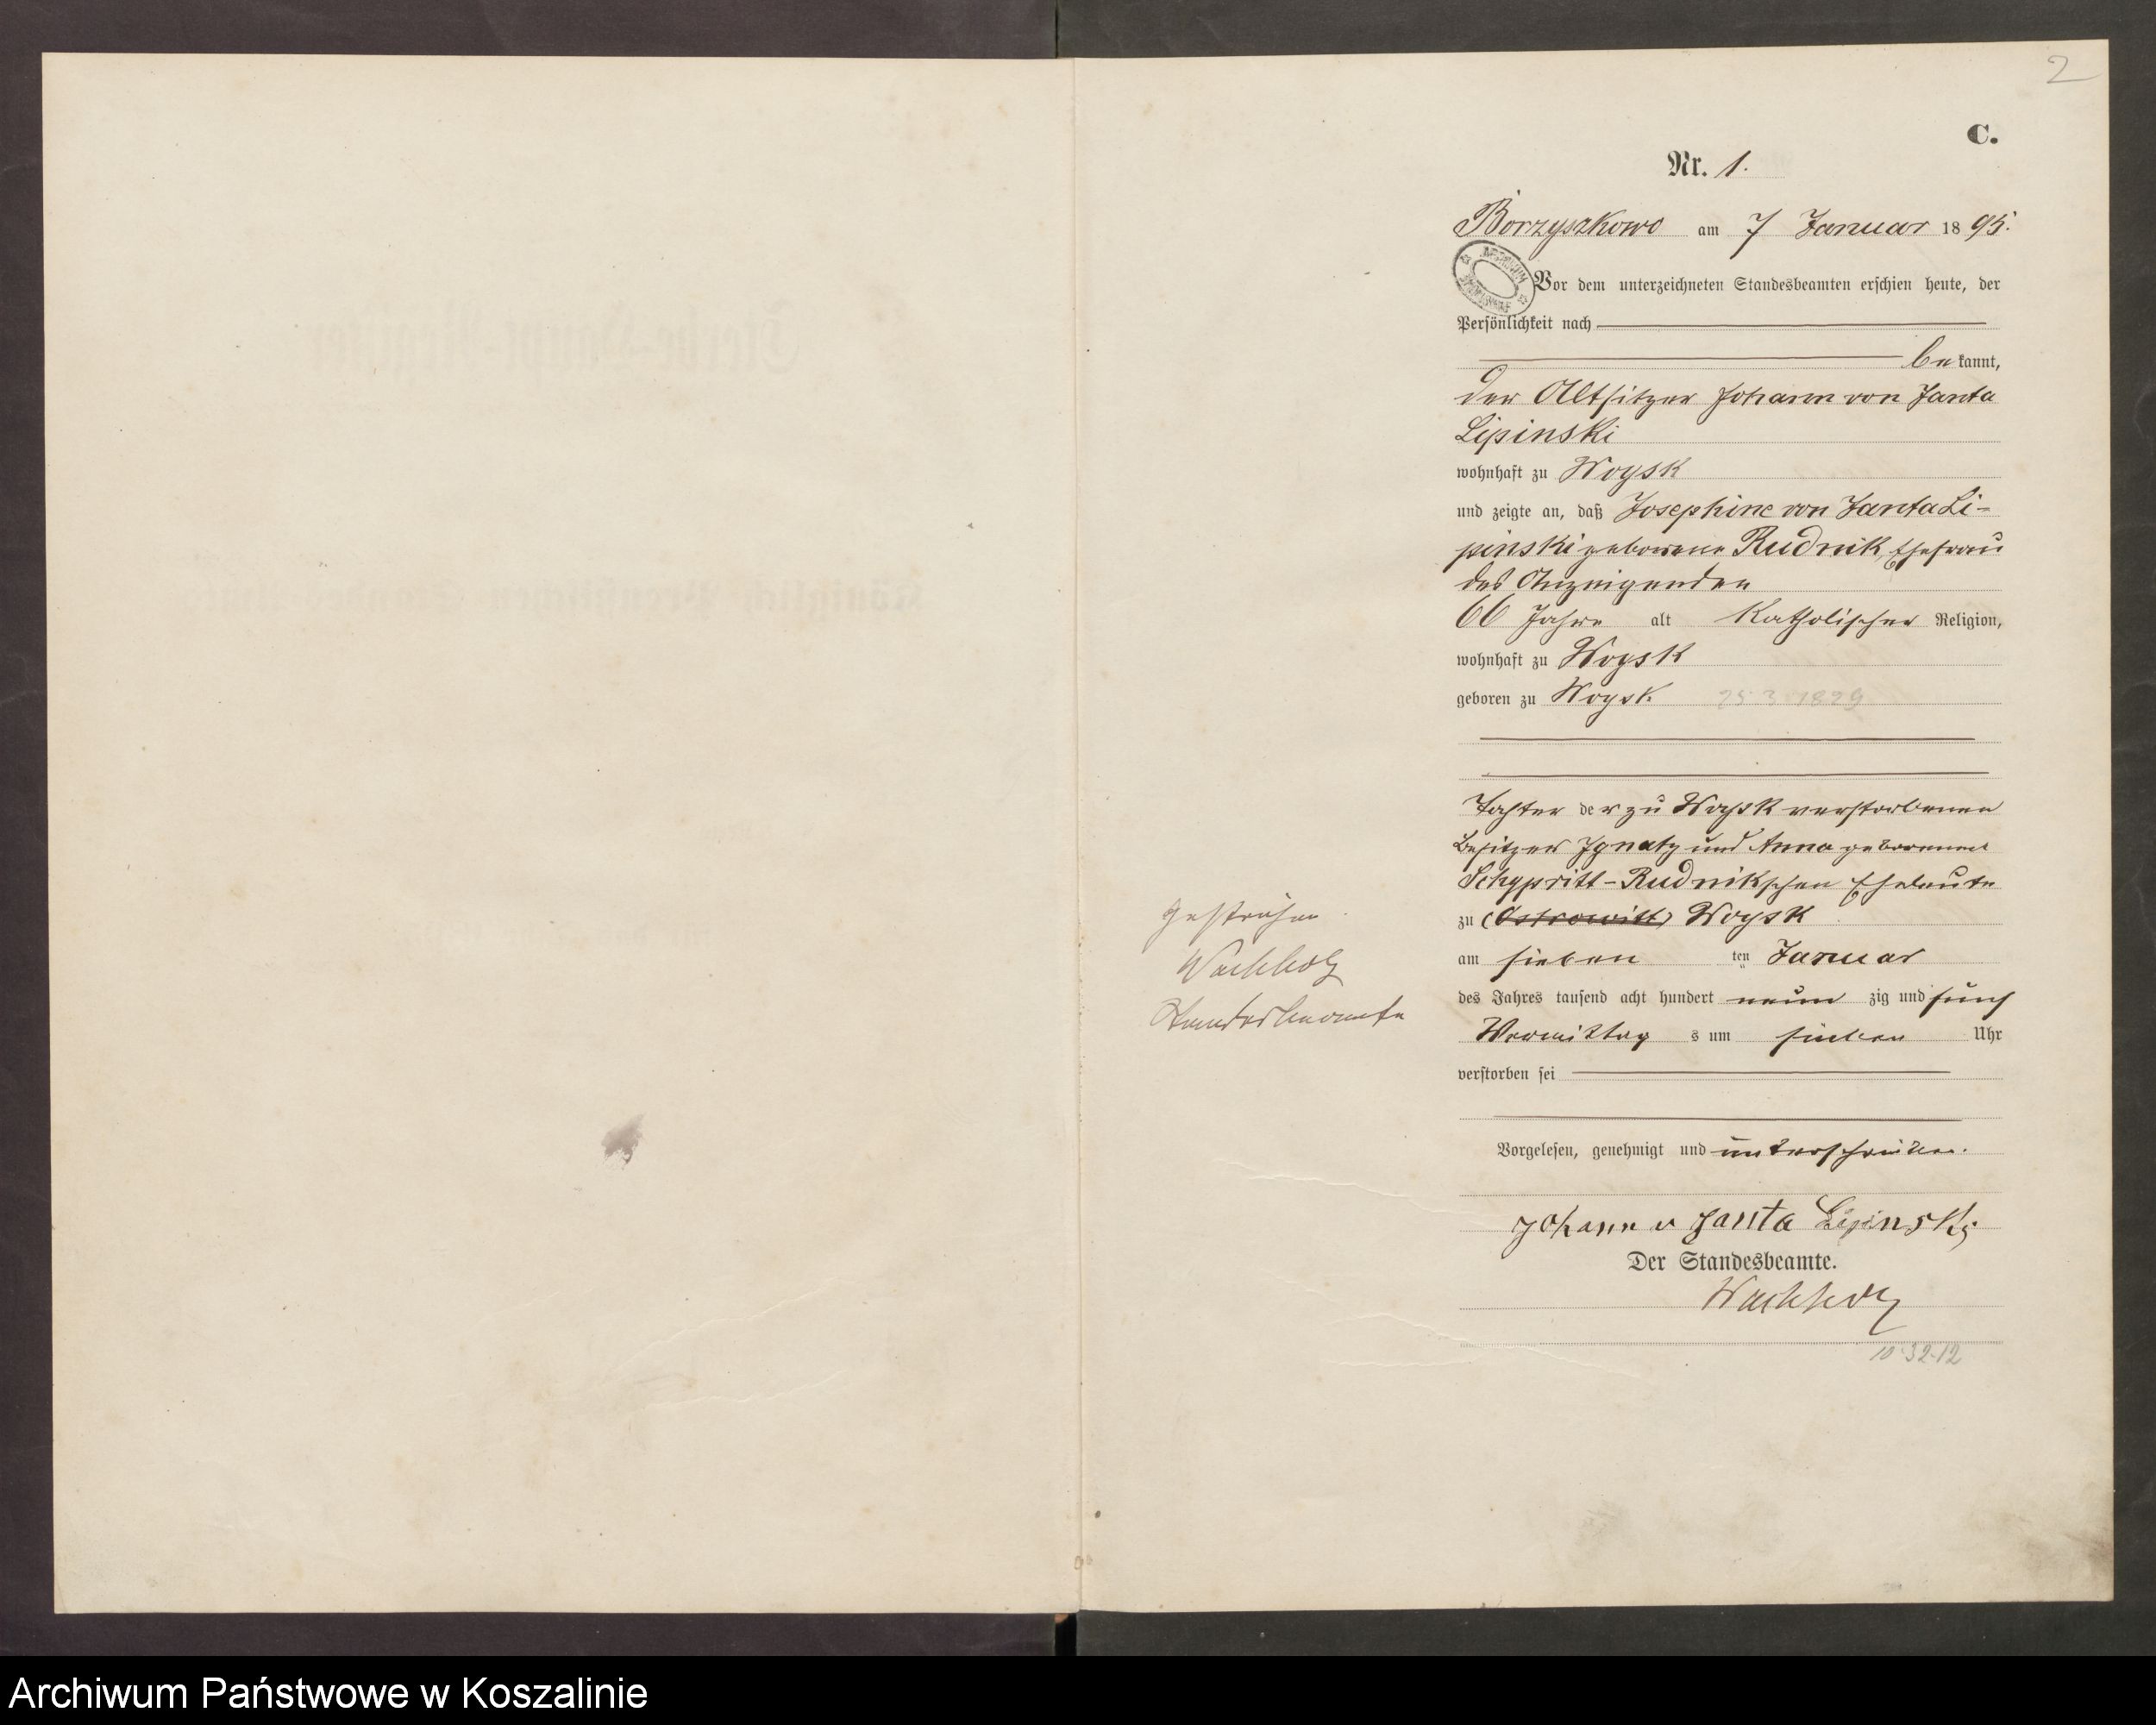 2
C.
Nr. 1.
Borzyszkowo am 7 Januar 1895.
Vor dem unterzeichneten Standesbeamten erschien heute, der
Persönlichkeit nach
bekannt,
der Altsitzer Johann von Janta
Lipinski
wohnhaft zu Woysk
und zeigte an, daß Josephine von Janta Li-
pinski geborene Rudnik, Ehefrau
des Anzeigenden
66 Jahre alt Katholischer Religion,
wohnhaft zu Woysk
geboren zu Woysk 25 3 1829
Tochter der zu Woysk verstorbenen
Besitzer Ignatz und Anna geborenen
Rudnikschen Eheleute
zu (Ostrowitt) Woysk
am sieben ten Januar
des Jahres tausend acht hundert neun zig und fünf
Vormittags um sieben Uhr
verstorben sei
Vorgelesen, genehmigt und unterschrieben.
Johann v Janta Lipinski
Der Standesbeamte.
Wachholz
10-32-12
Gestrichen
Wachholz
Standesbeamte
Archiwum Państwowe w Koszalinie